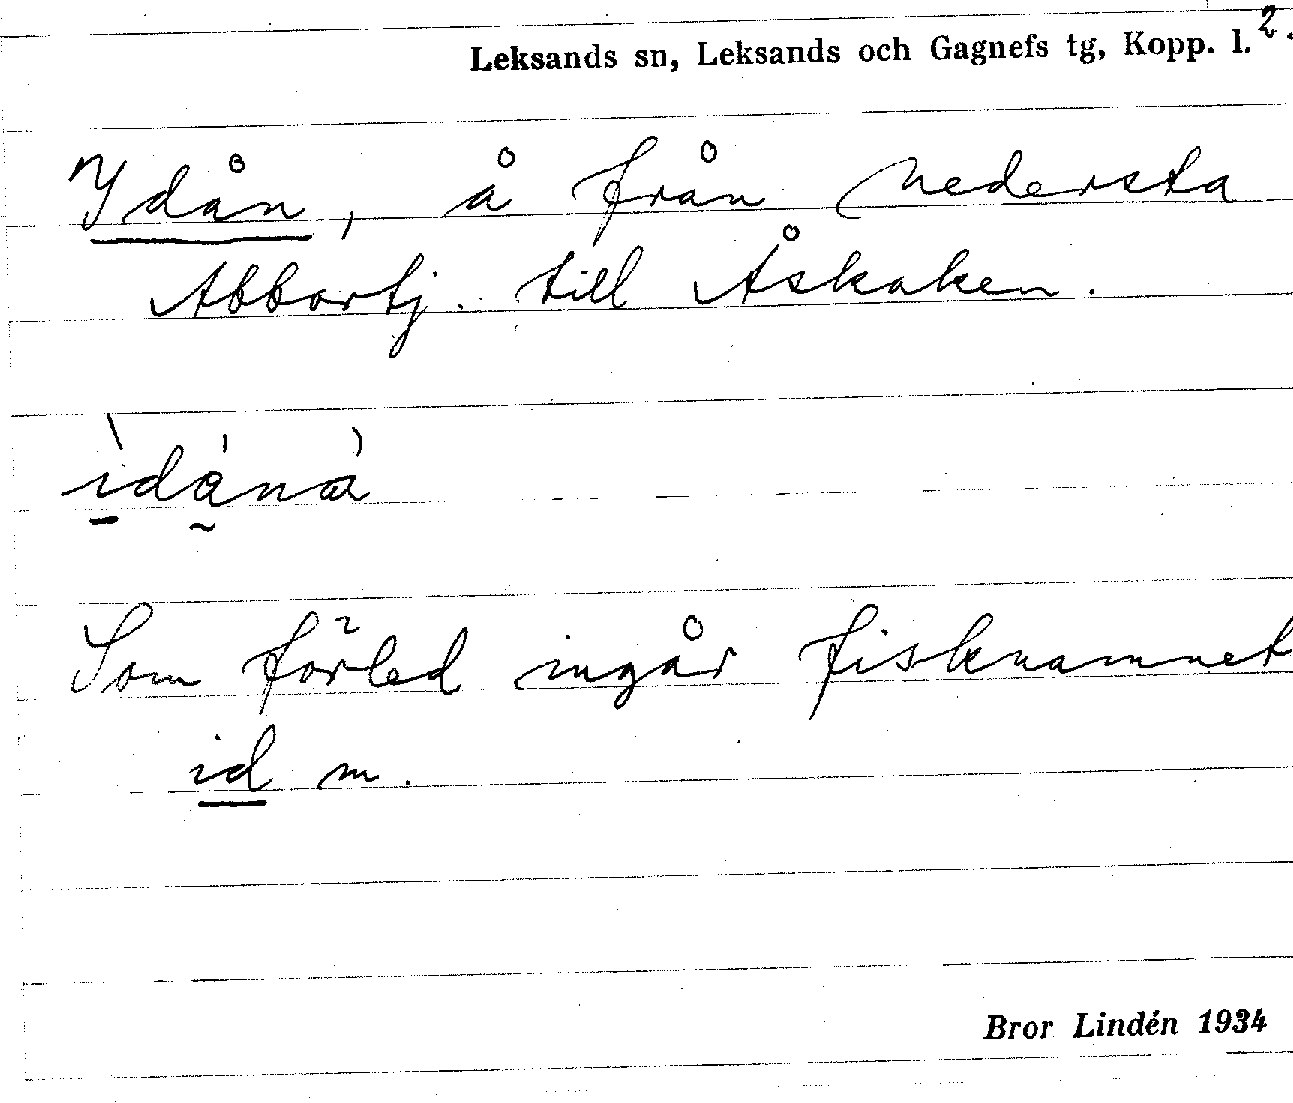 Leksands sn, Leksands och Gagnefs tg, Kopp. l. 2.
Ydån, å från nedersta
Abbortj. till Åskaken.
ìdá̰nà
Som förled ingår fisknamnet
id m.
Bror Lindén 1934